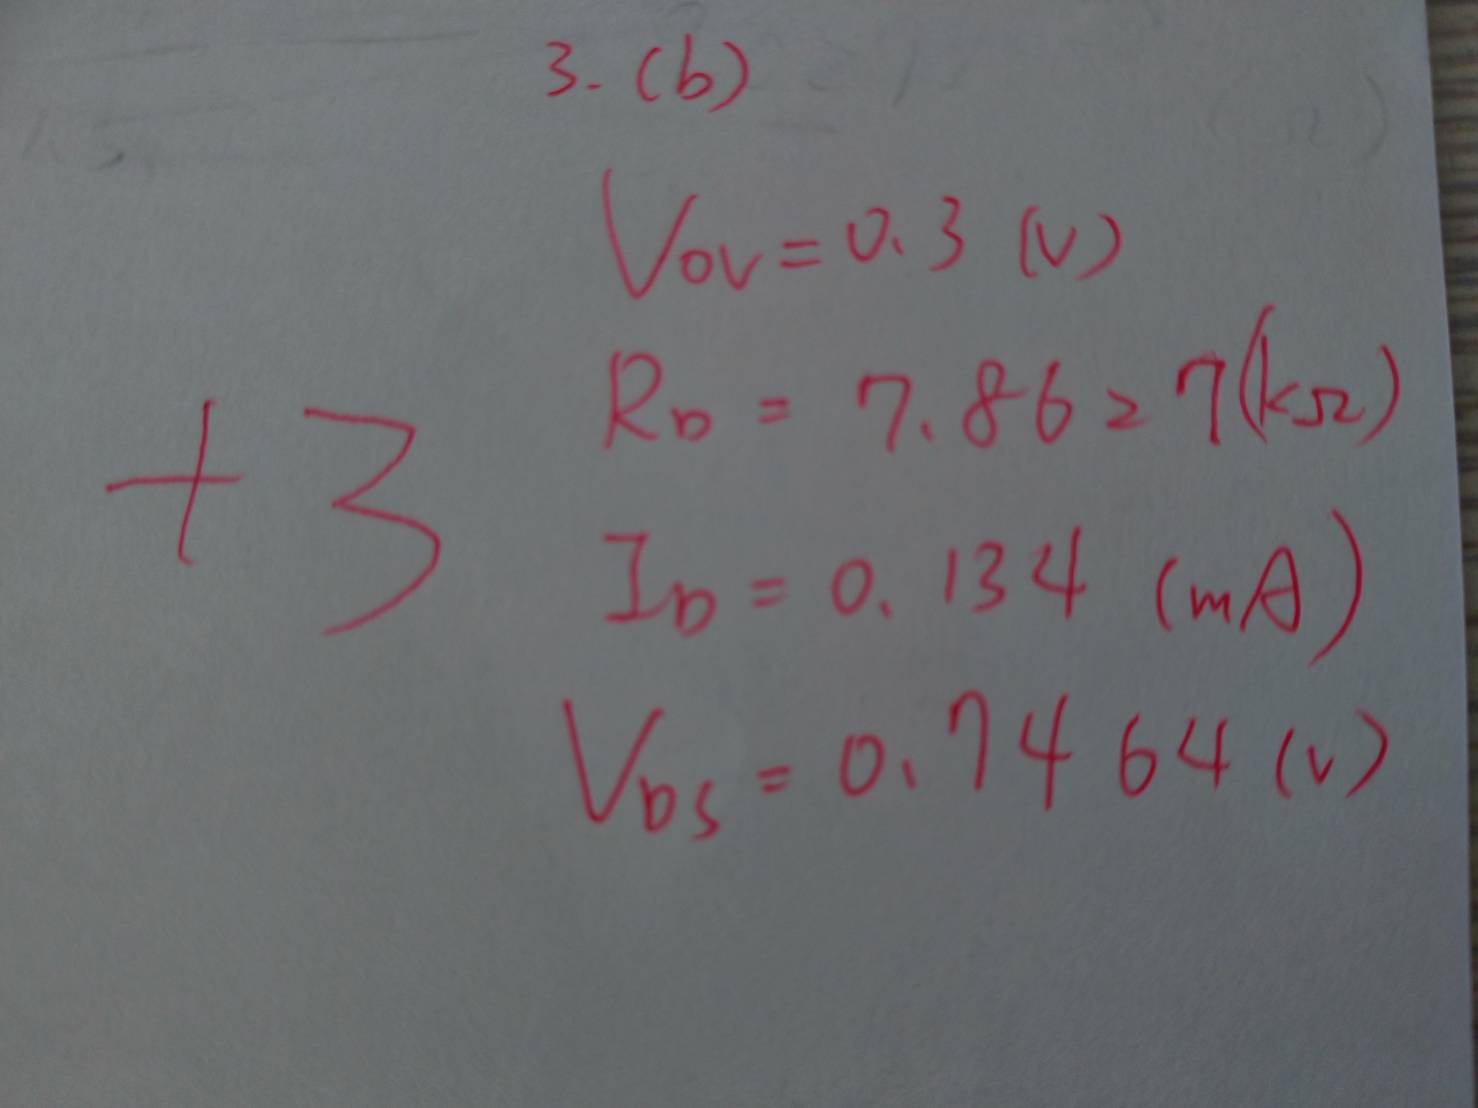 3. (b)
Vov = 0.3 (V)
+3
RD = 7.8627 (kΩ)
ID = 0.134 (mA)
VDS = 0.7464 (V)